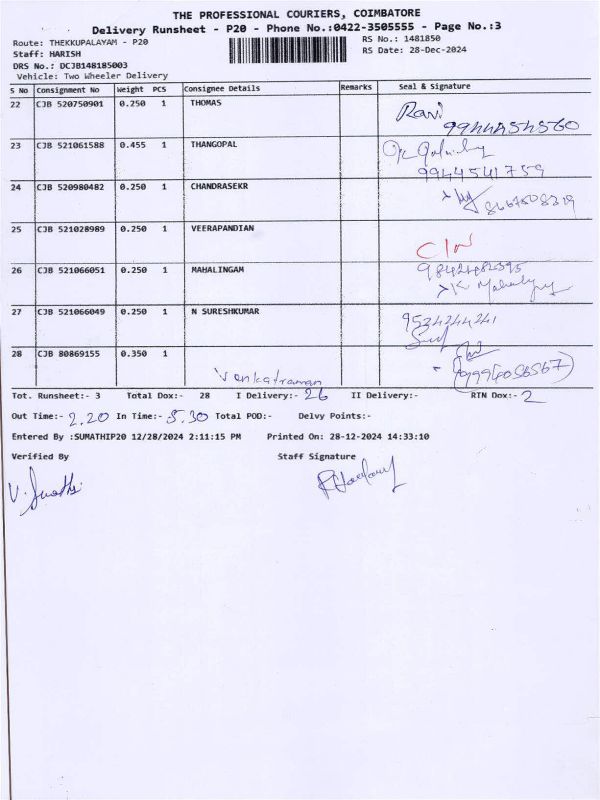 THE PROFESSIONAL COURIERS, COIMBATORE
Delivery Runsheet - P20 - Phone No.:0422-3505555 - Page No.:3
Route: THEKKUPALAYAM - P20
RS No.: 1481850
Staff: HARISH
RS Date: 28-Dec-2024
DRS No.: DCJB148185003
Vehicle: Two Wheeler Delivery
S No Consignment No Weight PCS Consignee Details Remarks Seal & Signature
22 CJB 520750901 0.250 1 THOMAS Ravi
23 CJB 521061588 0.455 1 THANGOPAL
9944541759
24 CJB 520980482 0.250 1 CHANDRASEKR
25 CJB 521028989 0.250 1 VEERAPANDIAN
26 CJB 521066051 0.250 1 MAHALINGAM
27 CJB 521066049 0.250 1 N SURESHKUMAR
9534244241
28 CJB 80869155 0.350 1
Venkatraman
Tot. Runsheet:- 3 Total Dox:- 28 I Delivery:- 26 II Delivery:- RTN Dox:- 2
Out Time:- 2.20 In Time:- 5.30 Total POD:- Delvy Points:-
Entered By :SUMATHIP20 12/28/2024 2:11:15 PM Printed On: 28-12-2024 14:33:10
Verified By Staff Signature